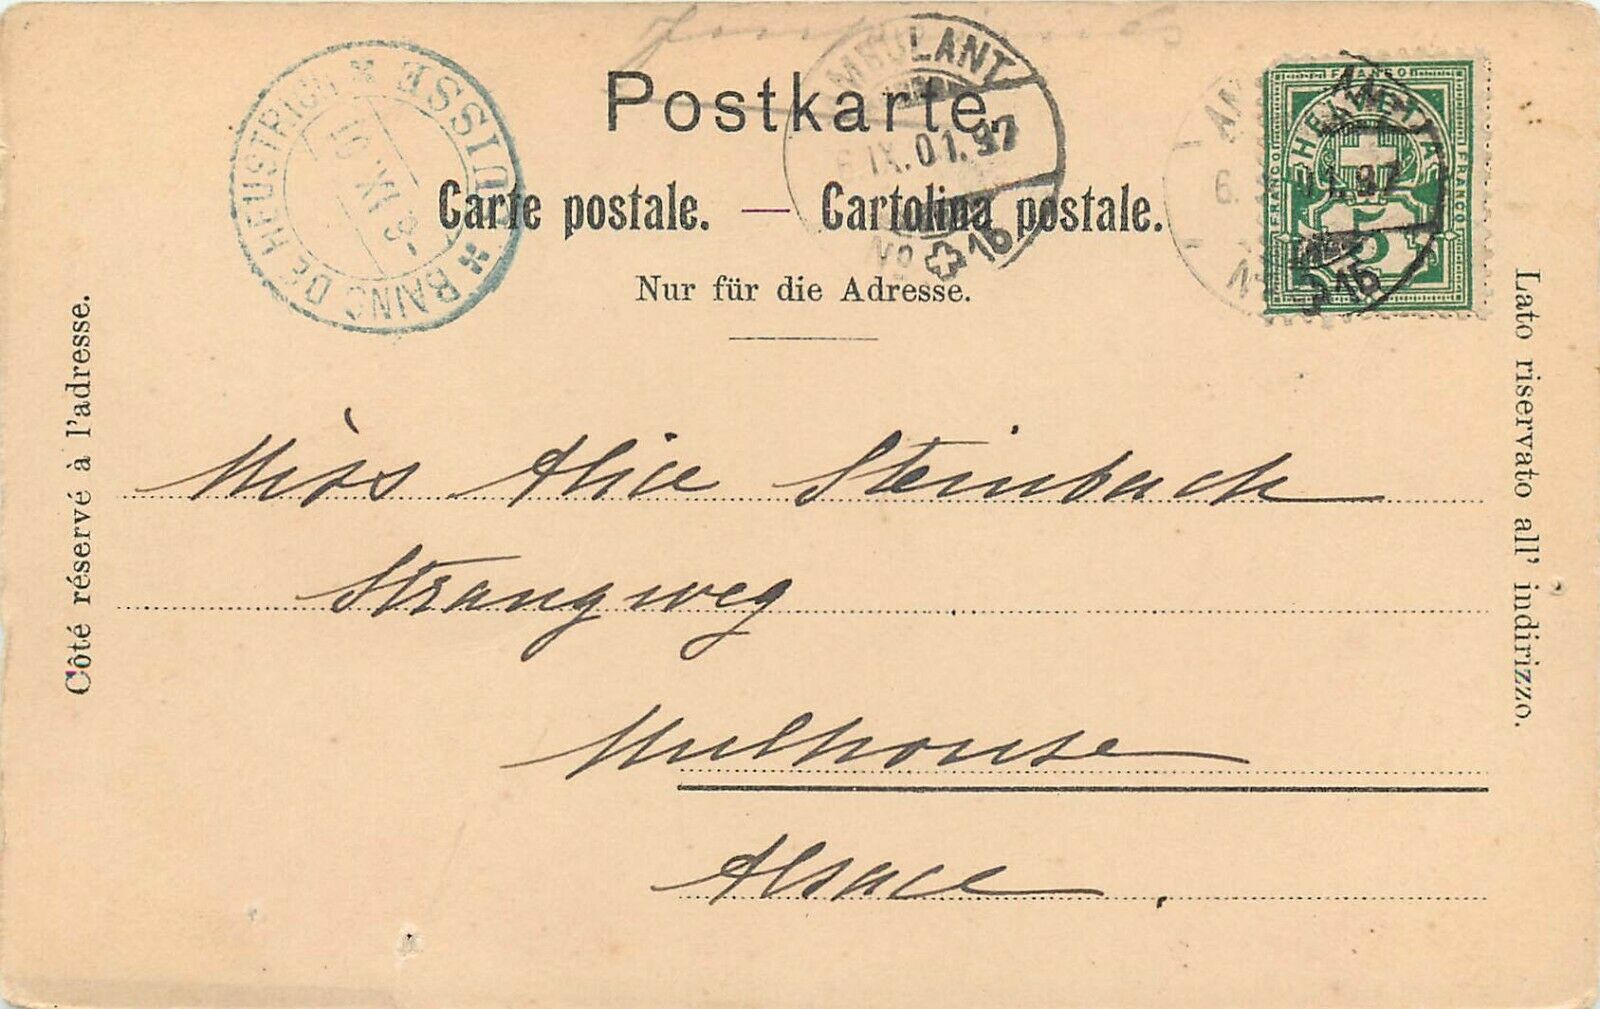 Postkarte.
Carte postale. — Cartolina postale.
Nur für die Adresse.
Côté réservé à l'adresse.
Lato riservato all' indirizzo.
SUISSE
BAINS DE HEUSTRICH
-6 IX 01
AMBULANT
6.IX.01.
No 15
HELVETIA
FRANCO
FRANCO
FRANCO
5
AM
6
No 15
Miss Alice Steinbach
Strangweg
Mulhouse
Alsace